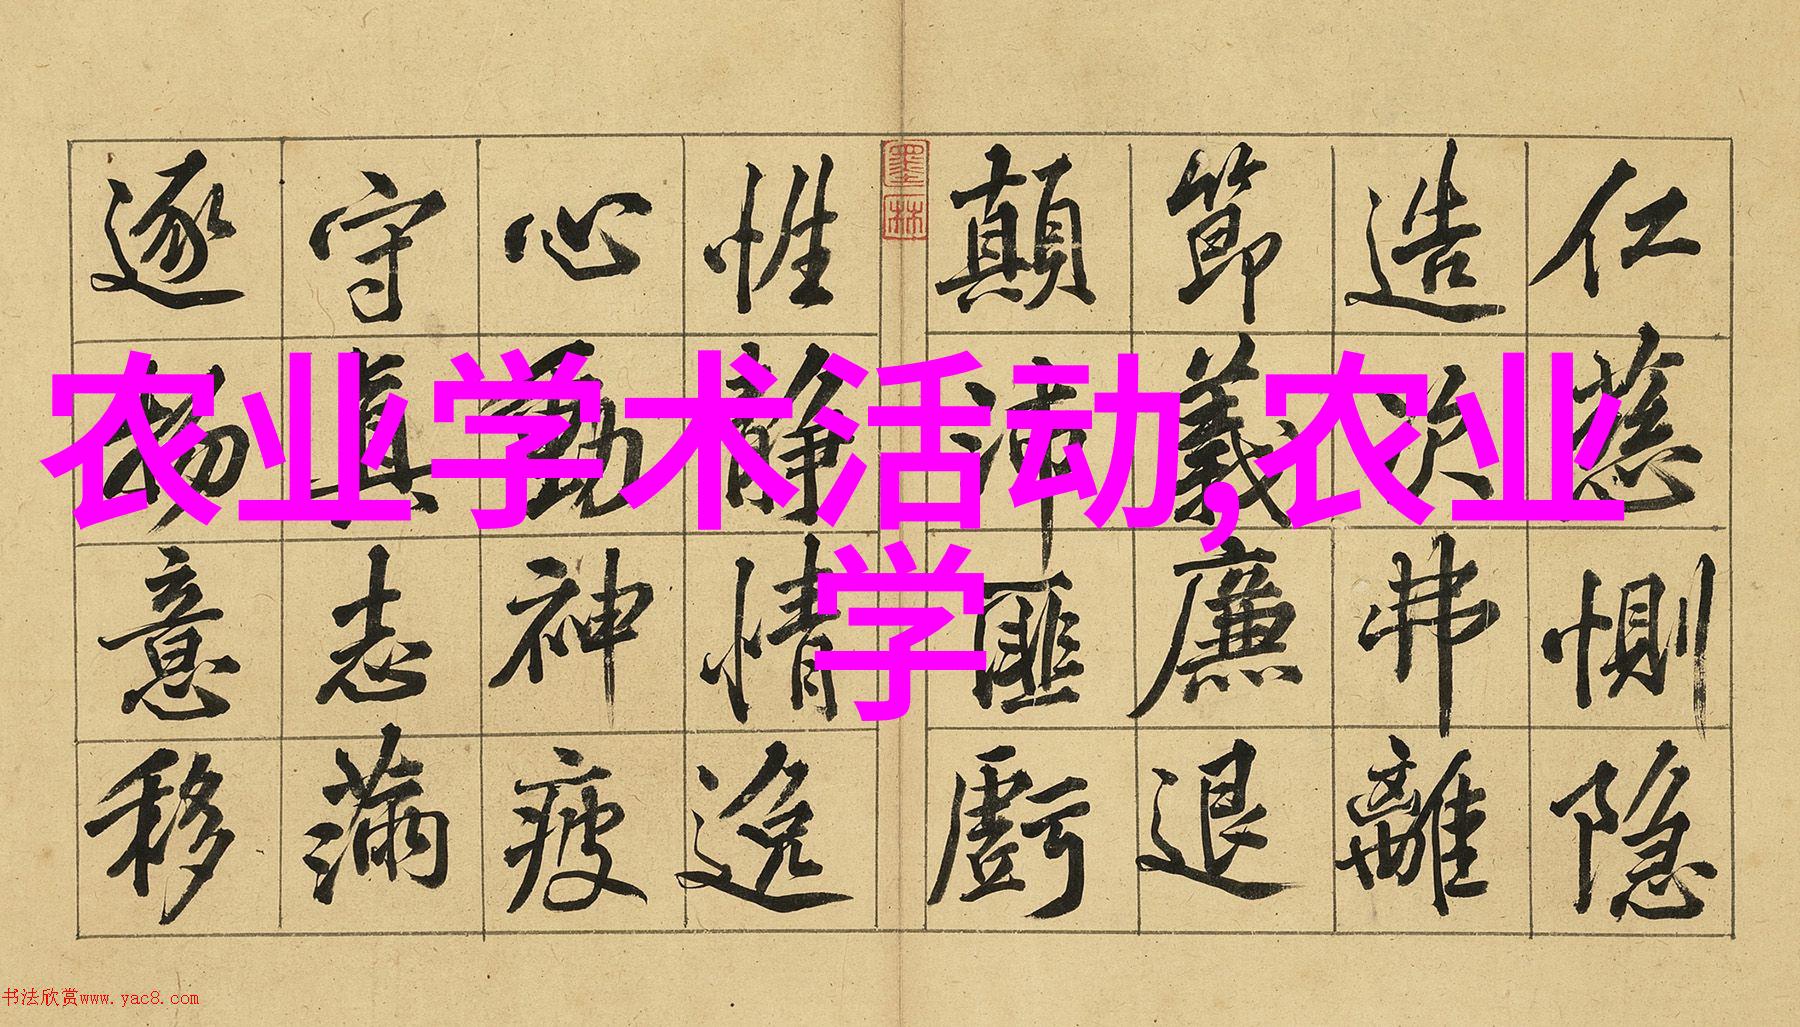 农业学术活动,农业
学
仁慈惻隐
造次弗離
節義廉退
顛沛匪虧
墨林
性静情逸
心動神疲
守真志滿
逐物意移
书法欣赏www.yac8.com